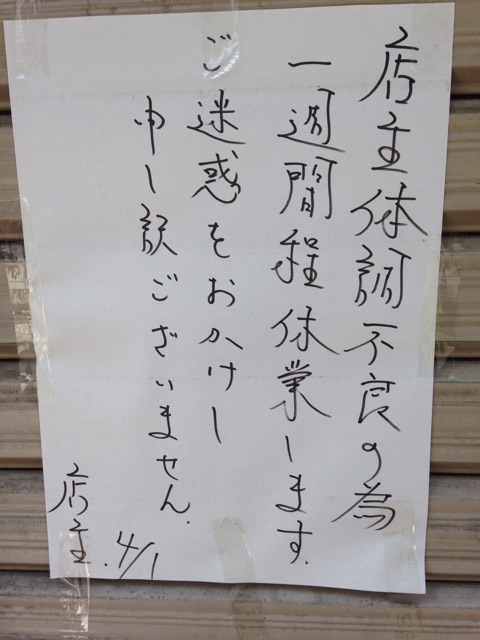 店主体調不良の為
一週間程休業します.
ご迷惑をおかけし
申し訳ございません.
4/1
店主.